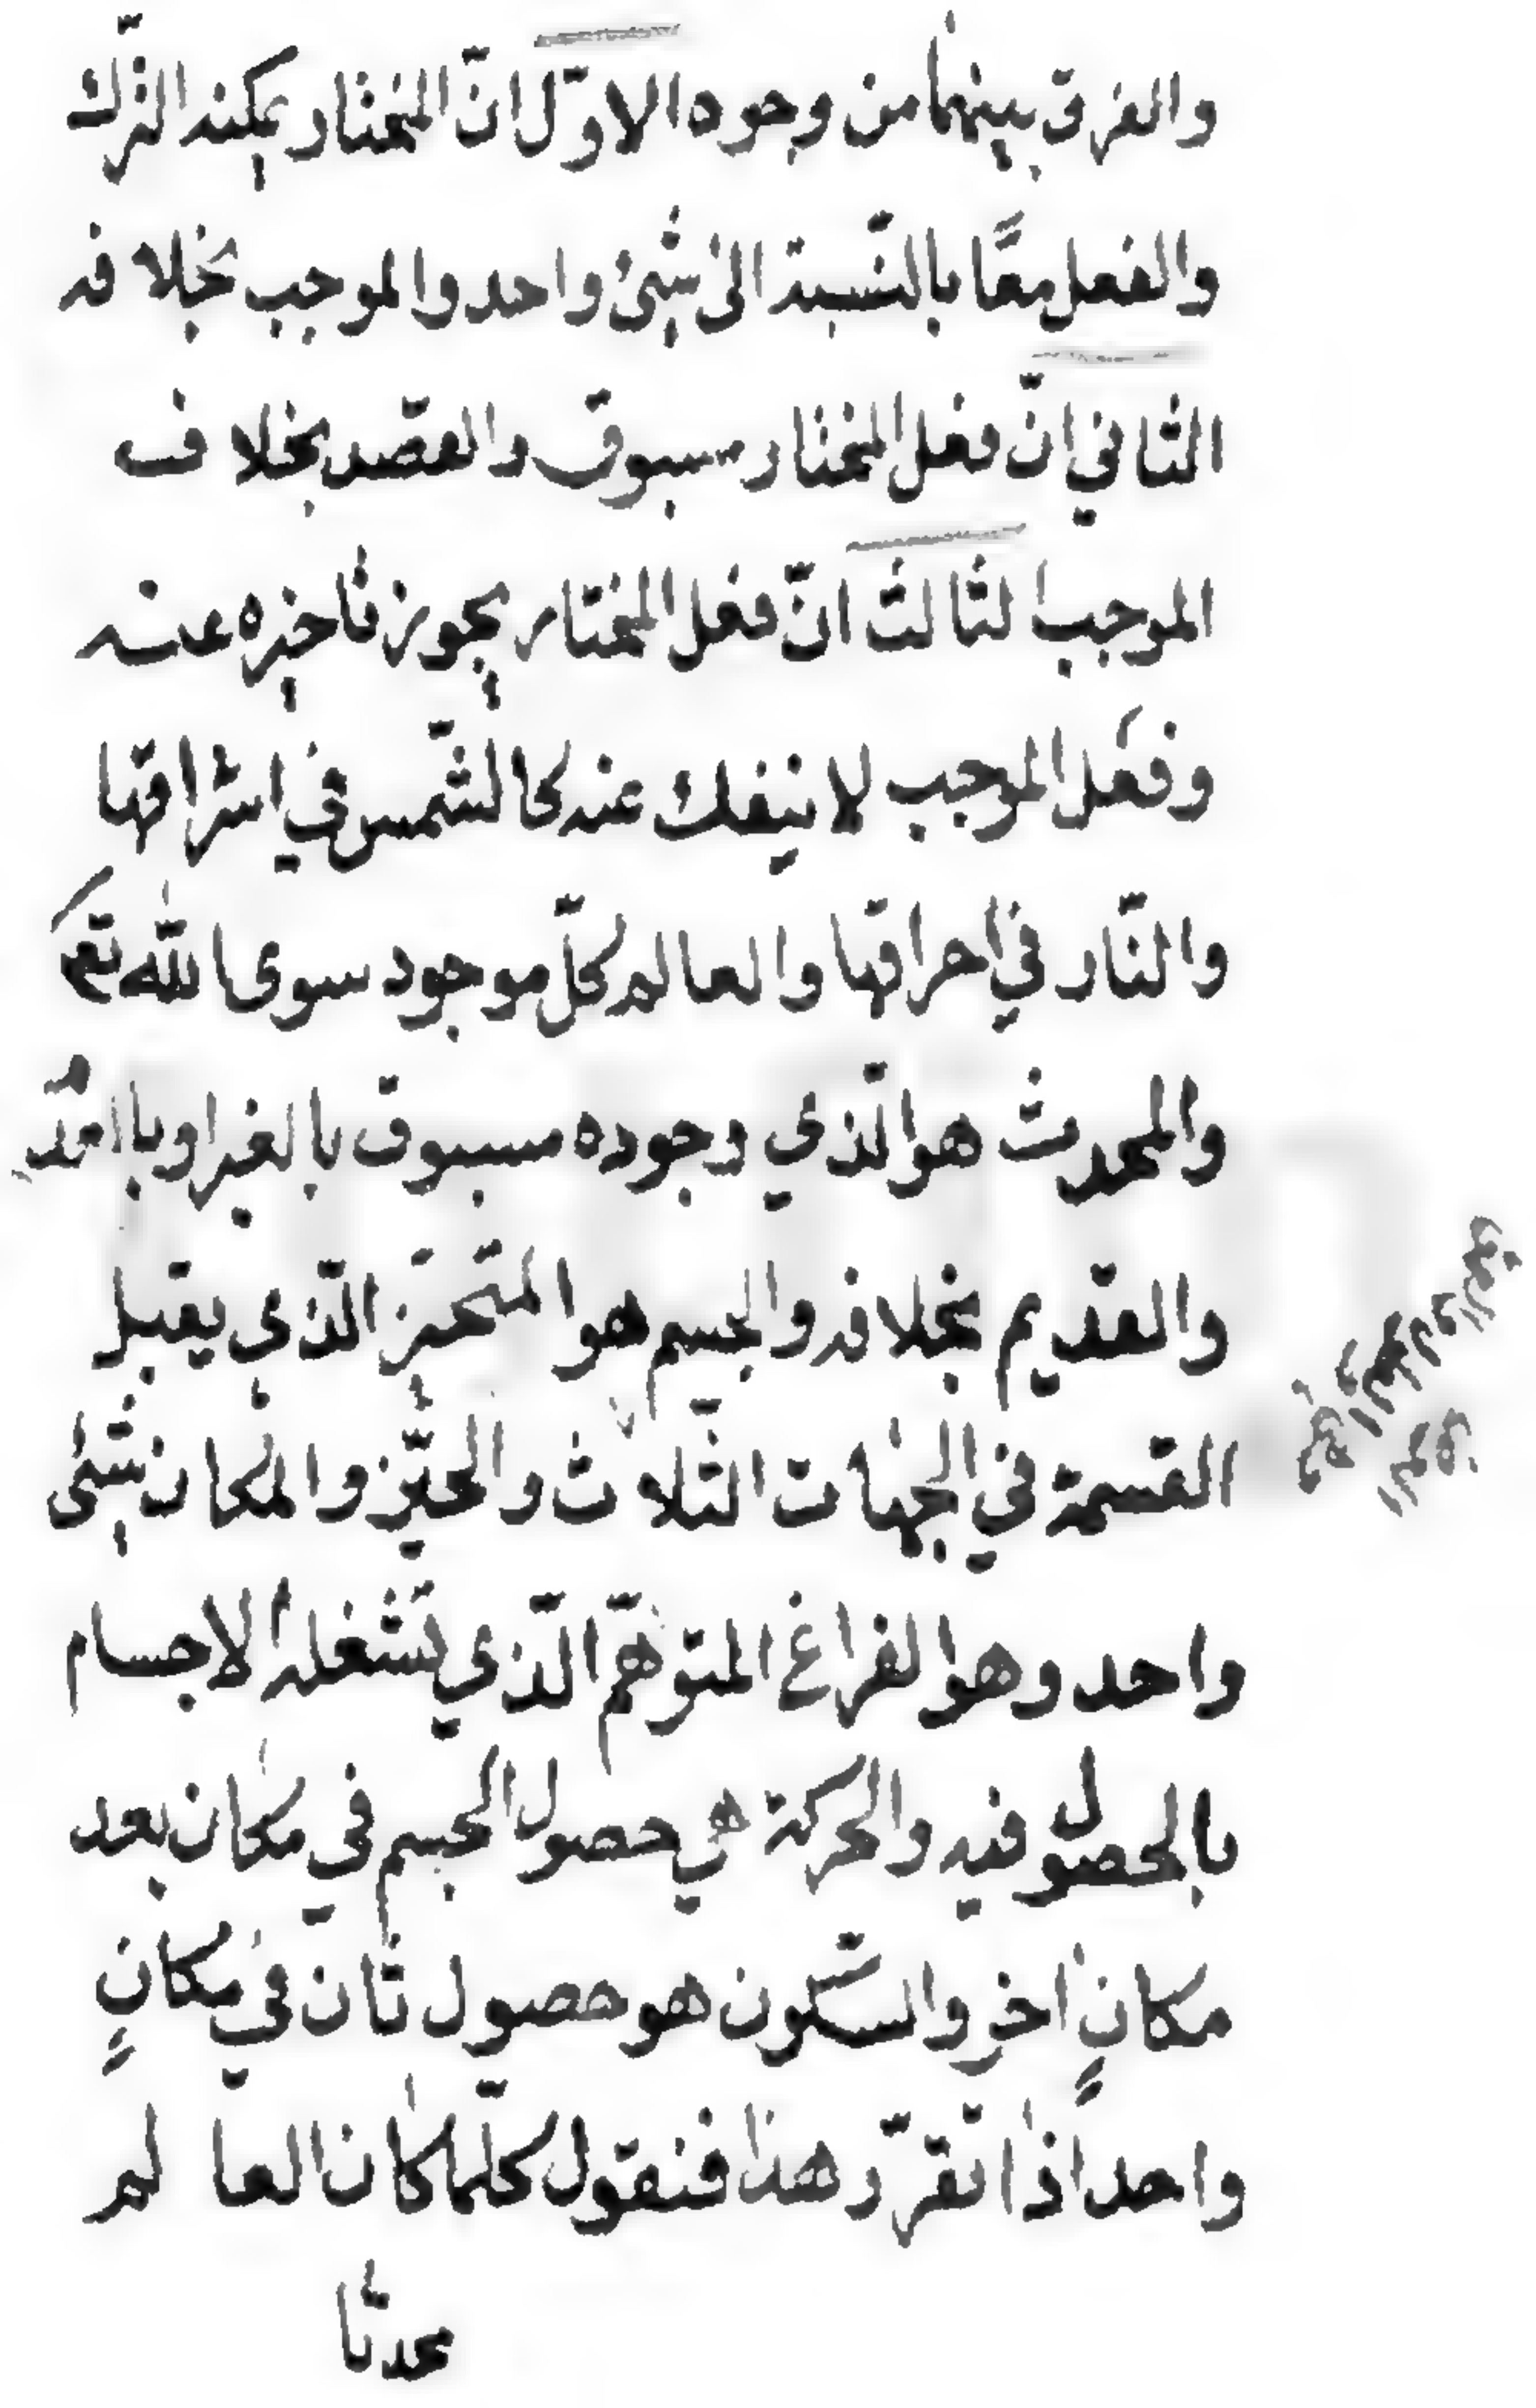 والفرق بينهما من وجوه الاوّل انّ المختار يمكنه الترّك
والفعل معًا بالنّسبة الى شيئ واحد والموجب بخلافه
الثاني انّ فعل المختار مسبوق والقصد بخلاف
الموجب الثالث انّ فعل المختار يجوز تأخيره عنه
وفعل الموجب لا ينفك عنه كالشّمس في اشراقها
والنّار في احراقها والعالم كلّ موجود سوى الله تع
والمحدث هو الّذي وجوده مسبوق بالغير او با
والقديم بخلافه والجسم هو المتحيّز الّذي يقبل
القسمة في الجهات الثّلاث والحيّز والمكان شيئ
واحد وهو الفراغ المتوهّم الّذي تشغله الاجسام
بالحصول فيه والحركة هي حصول الجسم في مكان بعد
مكانٍ اخر والسّكون هو حصول ثان في مكانٍ
واحد اذا تقرّر هذا فنقول كلّما كان العالم
محدثا